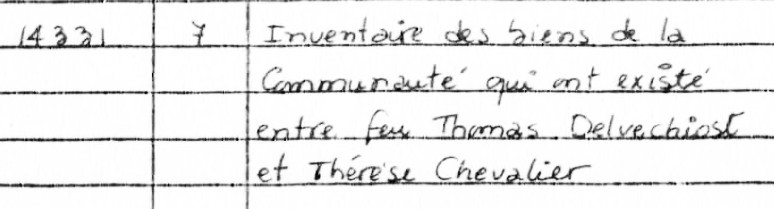 14331 7 Inventaire des biens de la
Communauté qui ont existé
entre feu Thomas Delvechiost
et Thérèse Chevalier